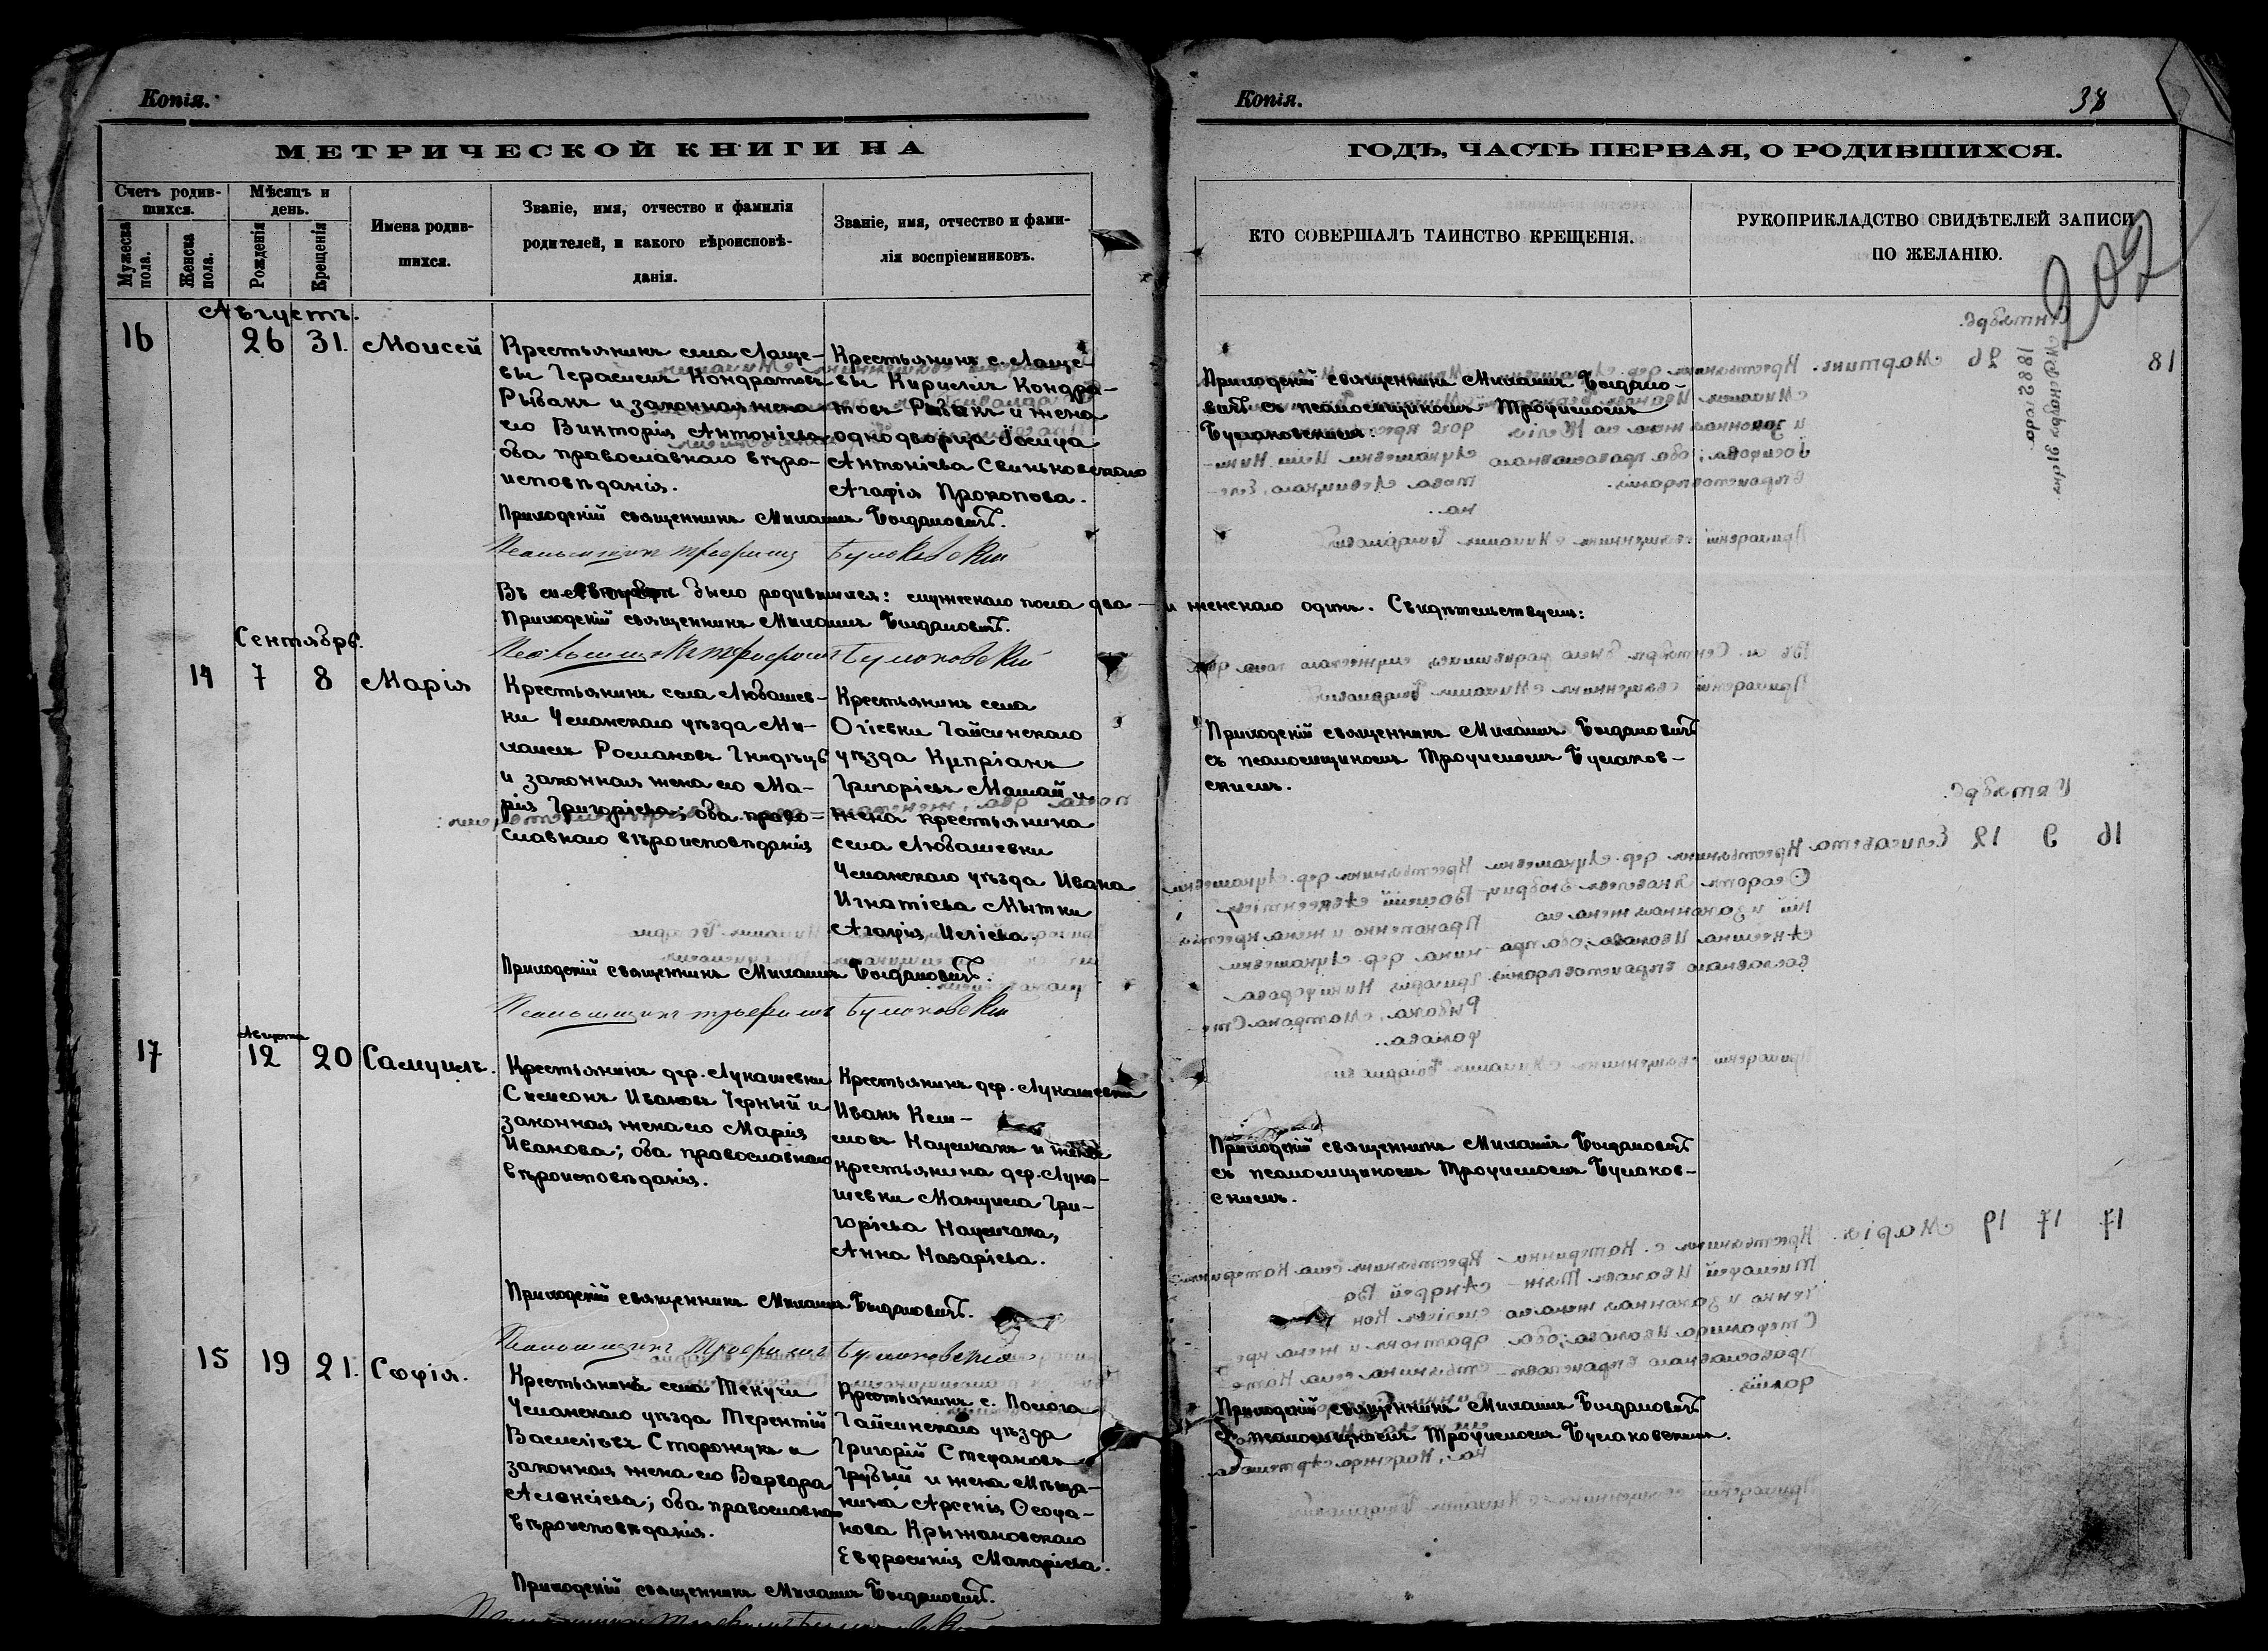 Копія.
МЕТРИЧЕСКОЙ КНИГИ НА
Счетъ родив-
шихся.
Мѣсяцъ и
день.
Мужеска
пола.
Женска
пола.
Рожденія
Крещенія
Имена родив-
шихся.
Званіе, имя, отчество и фамилія
родителей, и какого вѣроисповѣ-
данія.
Званіе, имя, отчество и фами-
лія воспріемниковъ.
Августъ.
16 26 31. Моисей
Крестьянинъ села Лаще-
вы Герасимъ Кондратовъ
Рыбакъ и законная жена
его Викторія Антоніева
оба православнаго вѣро-
исповѣданія.
Крестьянинъ с. Лаще-
вы Кириллъ Кондра-
товъ Рыбакъ и жена
однодворца Іосифа
Антоніева Свиньковскаго
Агафія Прокопова.
Приходскій священникъ Михаилъ Богдановичъ.
Псаломщикъ Трофимъ Булаковскій
Въ было родившихся: мужескаго пола два
Приходскій священникъ Михаилъ Богдановичъ.
Псаломщикъ Трофимъ Булаковскій
Сентябрь.
14 7 8 Марія
Крестьянинъ села Любашев-
ки Уманскаго уѣзда Ми-
хаилъ Романовъ
и законная жена его Ма-
рія Григоріева; оба право-
славнаго вѣроисповѣданія
Крестьянинъ села
Огіевки Гайсинскаго
уѣзда Кипріанъ
Григоріевъ и
жена крестьянина
села Любашевки
Уманскаго уѣзда Ивана
Игнатіева Мытки
Агафія Иліева.
Приходскій священникъ Михаилъ Богдановичъ.
Псаломщикъ Трофимъ Булаковскій
Августа
17 12 20 Самуилъ.
Крестьянинъ дер. Лукашевки
Симеонъ Ивановъ Черный и
законная жена его Марія
Иванова; оба православнаго
вѣроисповѣданія.
Крестьянинъ дер. Лукашевки
Иванъ
и жена
крестьянина дер. Лука-
шевки Мануила Гри-
горіева
Анна Назаріева.
Приходскій священникъ Михаилъ Богдановичъ.
Псаломщикъ Трофимъ Булаковскій
15 19 21. Софія.
Крестьянинъ села Текучи
Уманскаго уѣзда Терентій
Василіевъ Сторожукъ и
законная жена его Варвара
Алексіева; оба православнаго
вѣроисповѣданія.
Крестьянинъ с.
Гайсинскаго уѣзда
Григорій Стефановъ
Грубый и жена мѣща-
нина Арсенія Феофа-
нова Крыжановскаго
Евфросинія Макаріева.
Приходскій священникъ Михаилъ Богдановичъ.
Копія.
38
ГОДЪ, ЧАСТЬ ПЕРВАЯ, О РОДИВШИХСЯ.
КТО СОВЕРШАЛЪ ТАИНСТВО КРЕЩЕНІЯ.
РУКОПРИКЛАДСТВО СВИДѢТЕЛЕЙ ЗАПИСИ
ПО ЖЕЛАНІЮ.
207
Приходскій священникъ Михаилъ Богдано-
вичъ съ псаломщикомъ Трофимомъ
Булаковскимъ.
и женскаго одинъ. Свидѣтельствуемъ:
Приходскій священникъ Михаилъ Богдановичъ
съ псаломщикомъ Трофимомъ Булаков-
скимъ.
Приходскій священникъ Михаилъ Богдановичъ
съ псаломщикомъ Трофимомъ Булаков-
скимъ.
Приходскій священникъ Михаилъ Богдановичъ
съ псаломщикомъ Трофимомъ Булаковскимъ.